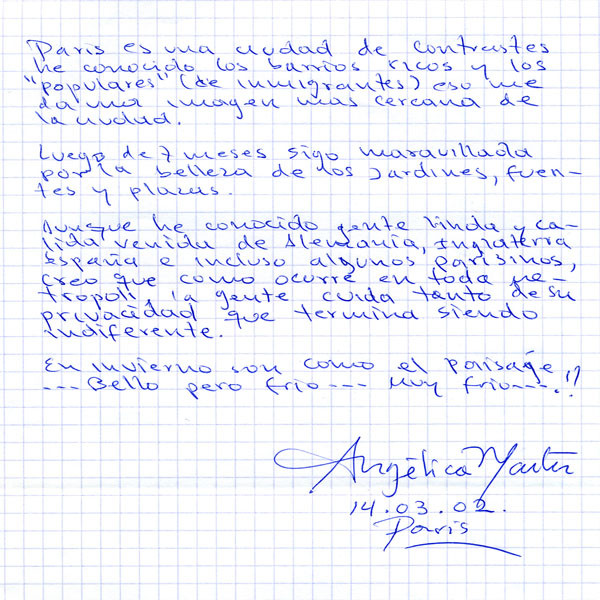 Paris es una ciudad de contrastes
he conocido los barrios ricos y los
"populares" (de inmigrantes) eso me
da una imagen mas cercana de
la ciudad.
Luego de 7 meses sigo maravillada
por la belleza de los Jardines, fuen-
tes y plazas.
Aunque he conocido gente linda y ca-
lida, venida de Alemania, Inglaterra
España e incluso algunos parisinos,
creo que como ocurre en toda me-
tropoli, la gente cuida tanto de su
privacidad que termina siendo
indiferente.
En invierno son como el paisage
--- Bello pero frio --- Muy frio ---.!!
Angélica Martin
14.03.02.
Paris